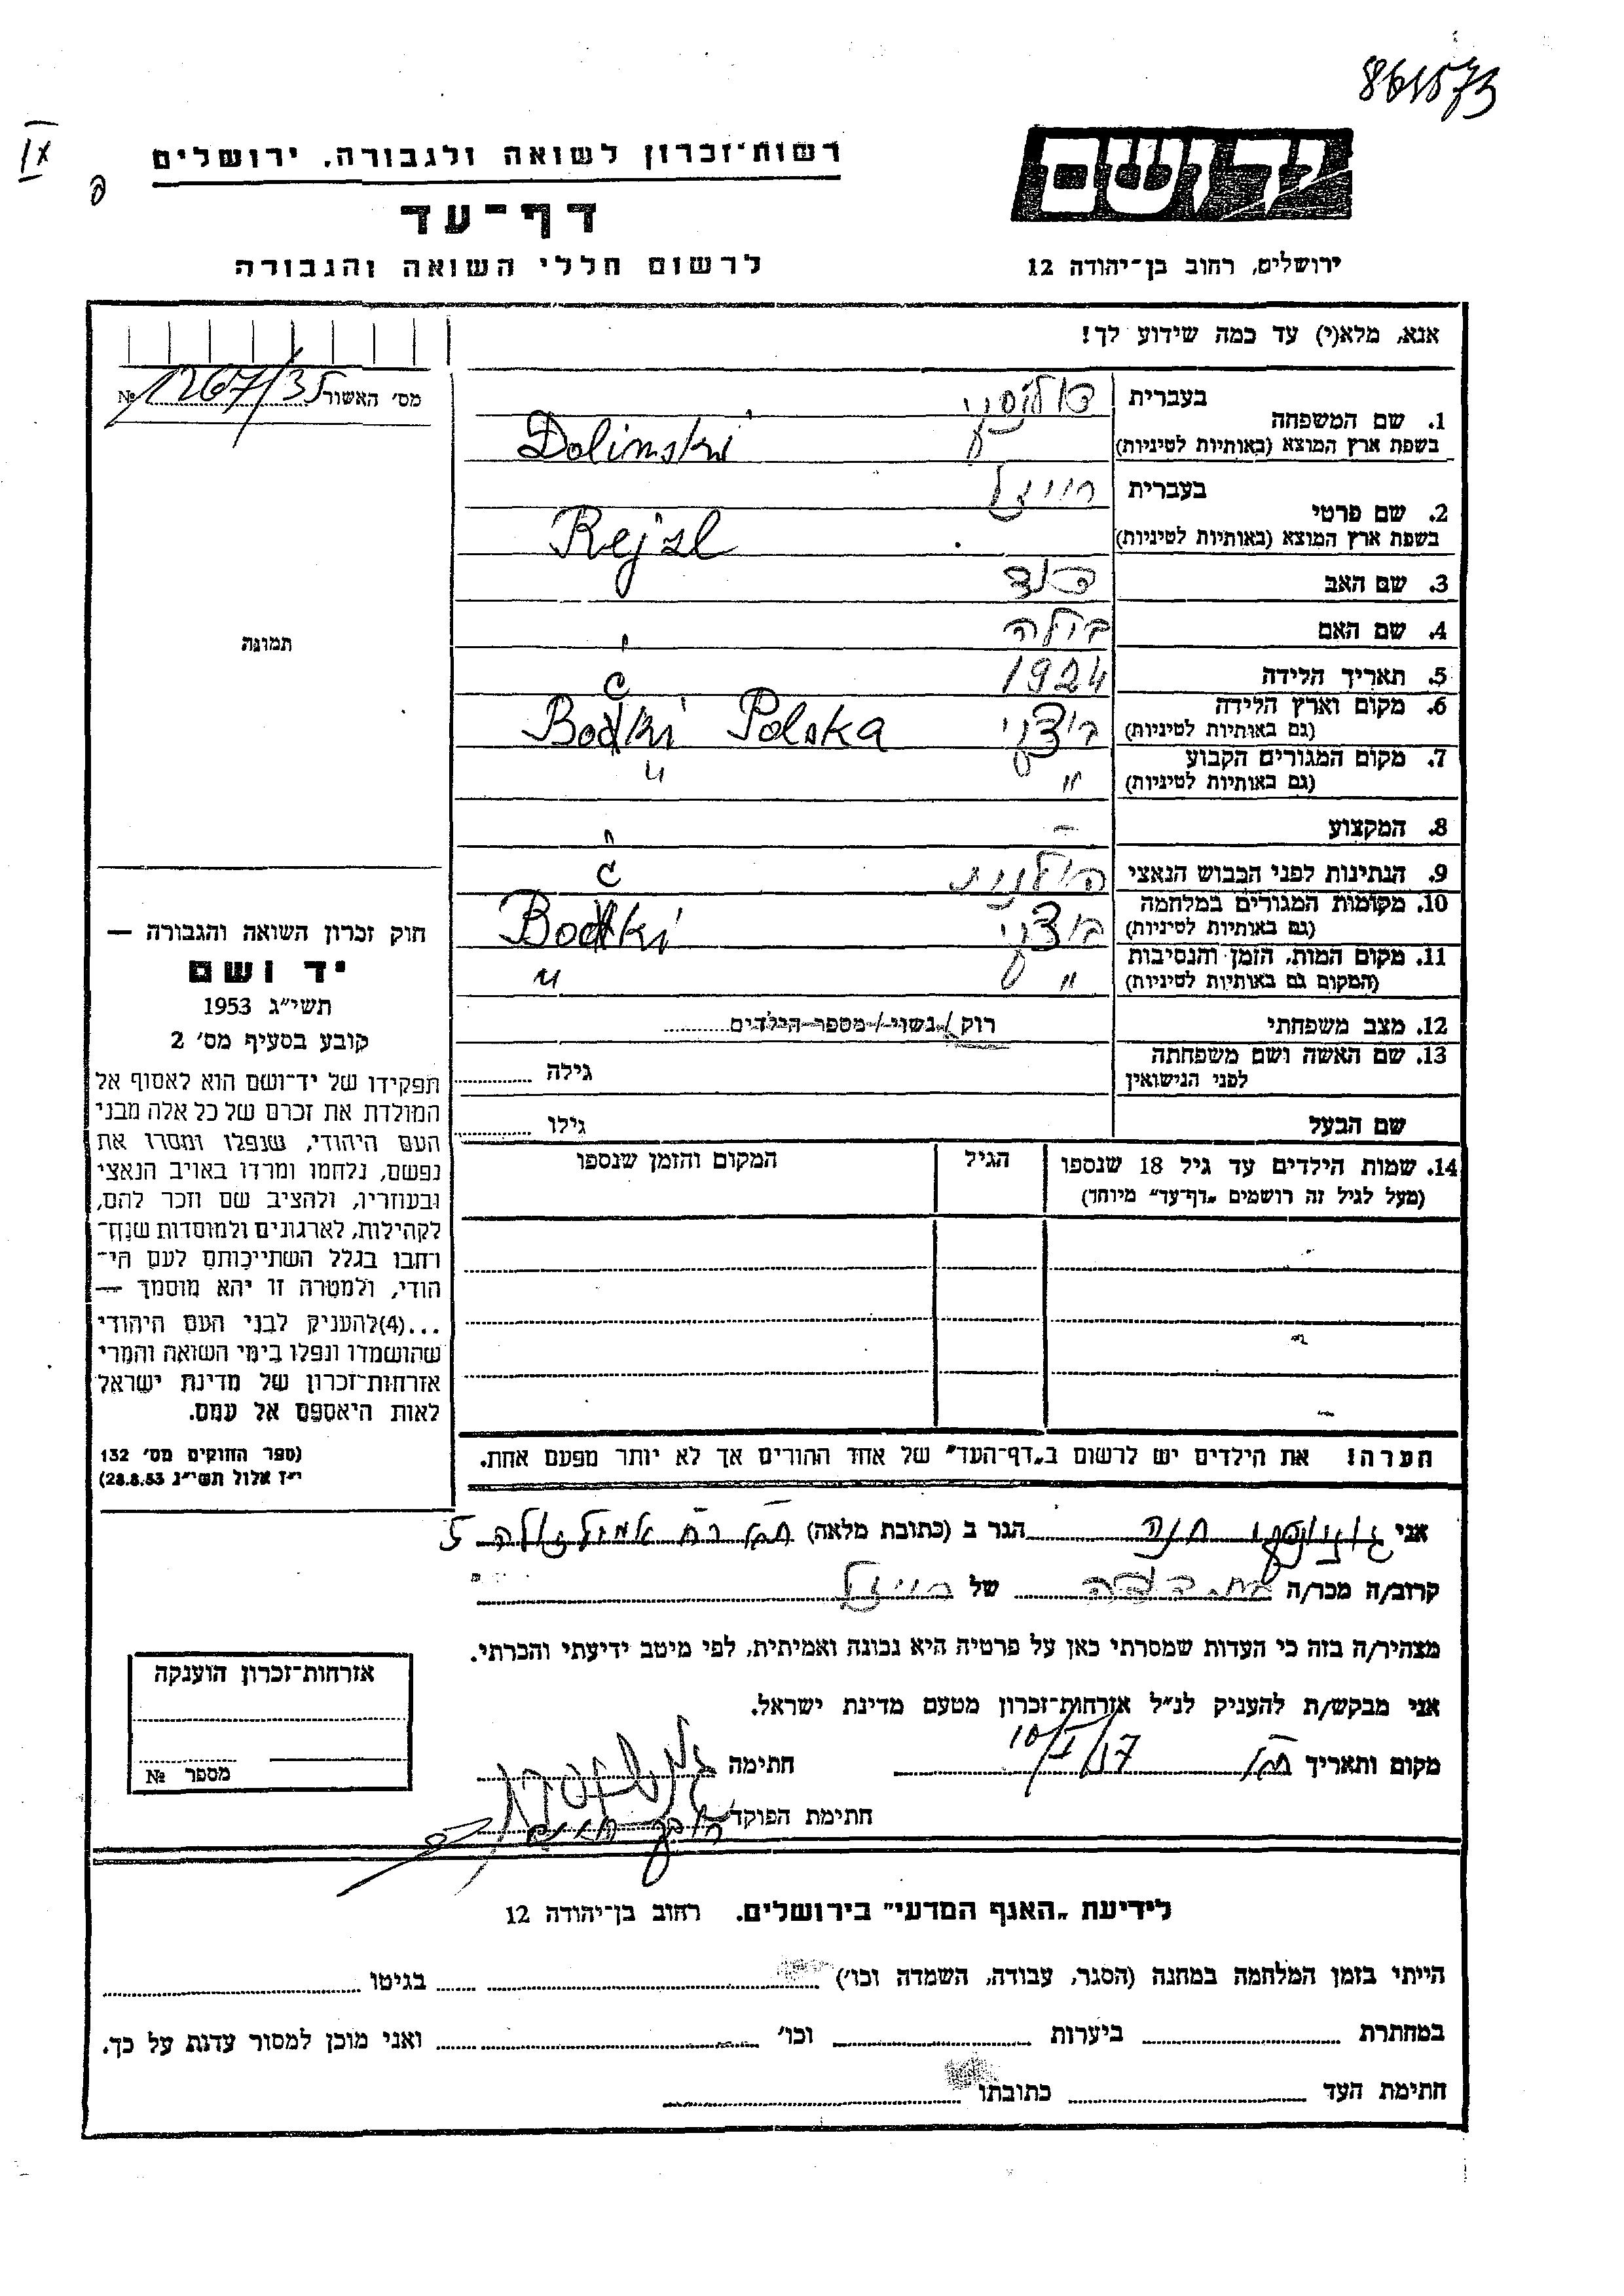 861573
IX
רשות־זכרון לשואה ולגבורה. ירושלים
דף־עד
לרשום חללי השואה והגבורה
ידושם
ירושלים, רחוב בן־יהודה 12
אנא, מלא(י) עד כמה שידוע לך!
מס׳ האשור 1267/35 №
1. שם המשפחה
בעברית דולינסקי
בשפת ארץ המוצא (באותיות לטיניות) Dolinski
2. שם פרטי
בעברית רייזל
בשפת ארץ המוצא (באותיות לטיניות) Rejzl
3. שם האב דוד
4. שם האם
5. תאריך הלידה 1924
6. מקום וארץ הלידה
(גם באותיות לטיניות) בוצקי Boćki Polska
7. מקום המגורים הקבוע
(גם באותיות לטיניות) " "
8. המקצוע –
9. הנתינות לפני הכבוש הנאצי פולנית
10. מקומות המגורים במלחמה
(גם באותיות לטיניות) בוצקי Boćki
11. מקום המות, הזמן והנסיבות
(המקום גם באותיות לטיניות) " "
12. מצב משפחתי רוק / נשוי / מספר הילדים
13. שם האשה ושם משפחתה
לפני הנישואין גילה
שם הבעל גילו
14. שמות הילדים עד גיל 18 שנספו
(מעל לגיל זה רושמים „דף־עד" מיוחד)
הגיל
המקום והזמן שנספו
תמונה
חוק זכרון השואה והגבורה —
יד ושם
תשי״ג 1953
קובע בסעיף מס׳ 2
תפקידו של יד־ושם הוא לאסוף אל
המולדת את זכרם של כל אלה מבני
העם היהודי, שנפלו ומסרו את
נפשם, נלחמו ומרדו באויב הנאצי
ובעוזריו, ולהציב שם וזכר להם,
לקהילות, לארגונים ולמוסדות שנח־
רחבו בגלל השתייכותם לעם הי־
הודי, ולמטרה זו יהא מוסמך —
...(4)להעניק לבני העם היהודי
שהושמדו ונפלו בימי השואה והמרי
אזרחות־זכרון של מדינת ישראל
לאות היאספם אל עמם.
(ספר החוקים מס׳ 132
י״ז אלול תשי״ג 28.8.53)
הערה! את הילדים יש לרשום ב„דף־העד" של אחד ההורים אך לא יותר מפעם אחת.
אני חנה הגר ב (כתובת מלאה)
קרוב/ה מכר/ה בת דודה של רייזל
מצהיר/ה בזה כי העדות שמסרתי כאן על פרטיה היא נכונה ואמיתית, לפי מיטב ידיעתי והכרתי.
אני מבקש/ת להעניק לנ״ל אזרחות־זכרון מטעם מדינת ישראל.
מקום ותאריך חתימה
חתימת הפוקד
אזרחות־זכרון הוענקה
מספר №
לידיעת „האגף המדעי" בירושלים. רחוב בן־יהודה 12
הייתי בזמן המלחמה במחנה (הסגר, עבודה, השמדה וכו׳) בגיטו
במחתרת ביערות וכו׳ ואני מוכן למסור עדות על כך.
חתימת העד כתובתו